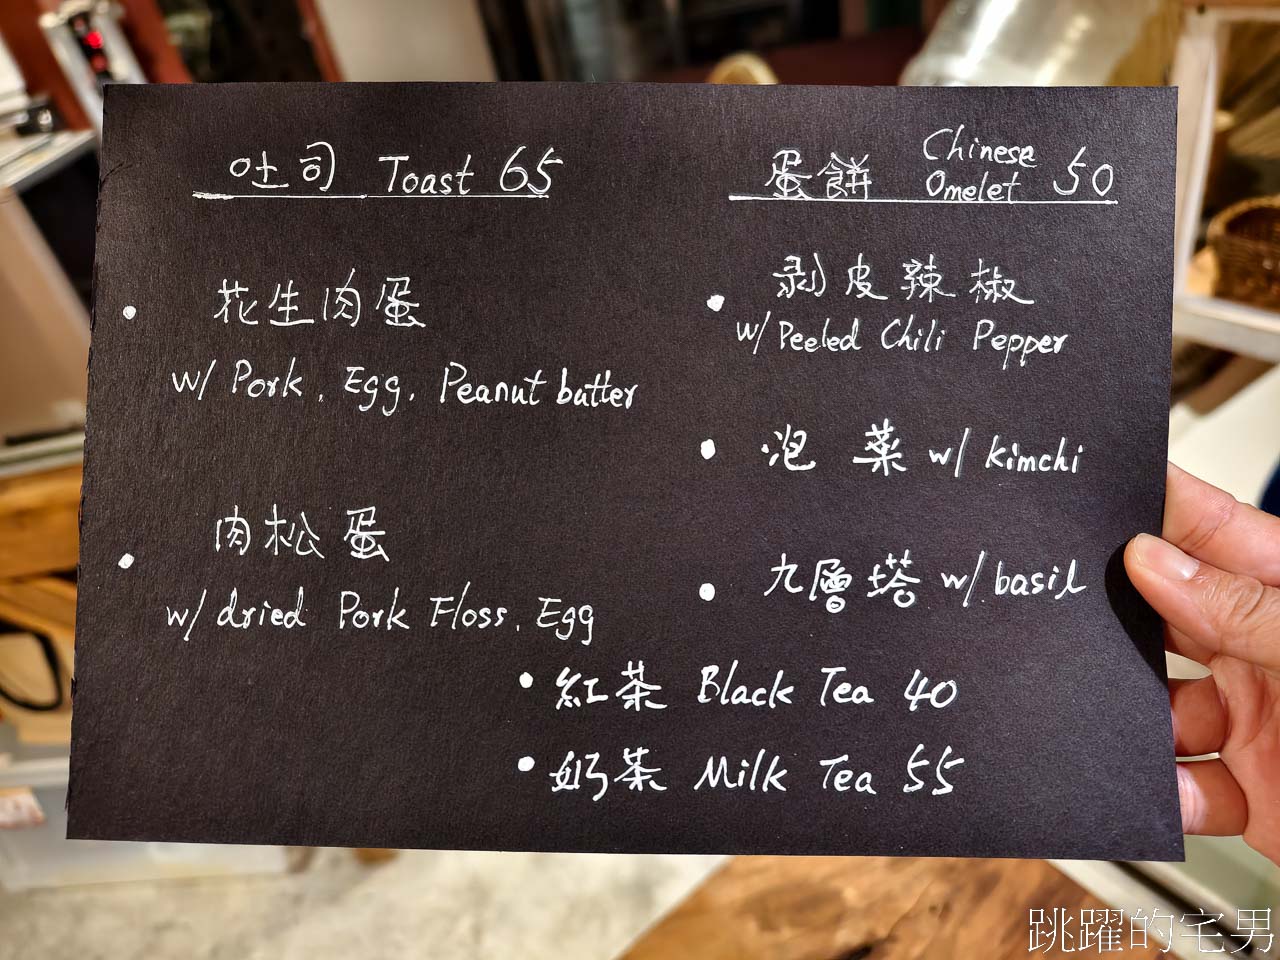 吐司 Toast 65
花生肉蛋
w/ Pork, Egg, Peanut butter
肉松蛋
w/ dried Pork Floss, Egg
蛋餅 Chinese Omelet 50
剥皮辣椒
w/ Peeled Chili Pepper
泡菜 w/ kimchi
九層塔 w/ basil
紅茶 Black Tea 40
奶茶 Milk Tea 55
跳躍的宅男